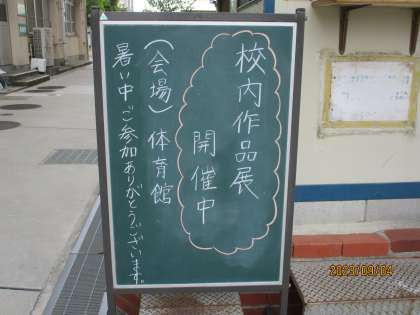 校内作品展
開催中
(会場)体育館
暑い中ご参加ありがとうございます。
2023/09/04